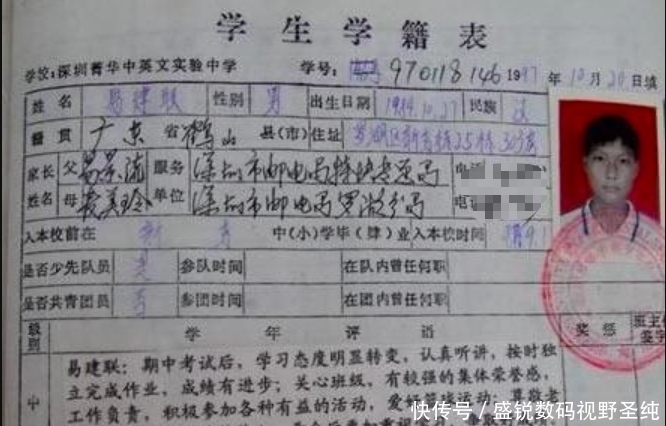 学生学籍表
学校:深圳菁华中英文实验中学 学号: 970118146 1997年10月20日填
姓名 易建联 性别 男 出生日期 1984.10.27 民族 汉
籍贯 广东省鹤山县(市) 住址 罗湖区新秀村25栋303房
家长姓名 父 易景流 服务单位 深圳市邮电局 电话
母 麦美玲 深圳市邮电局罗湖分局 电话
入本校前在 新秀 中(小)学毕(肆)业入本校时间
是否少先队员 是 参队时间 在队内曾任何职
是否共青团员 否 参团时间 在团内曾任何职
级别 学年评语 奖惩 班主 签字
中 易建联:期中考试后,学习态度明显转变,认真听讲,按时独
立完成作业,成绩有进步;关心班级,有较强的集体荣誉感,
工作负责,积极参加各种有益的活动,爱
快传号/盛锐数码视野圣纯